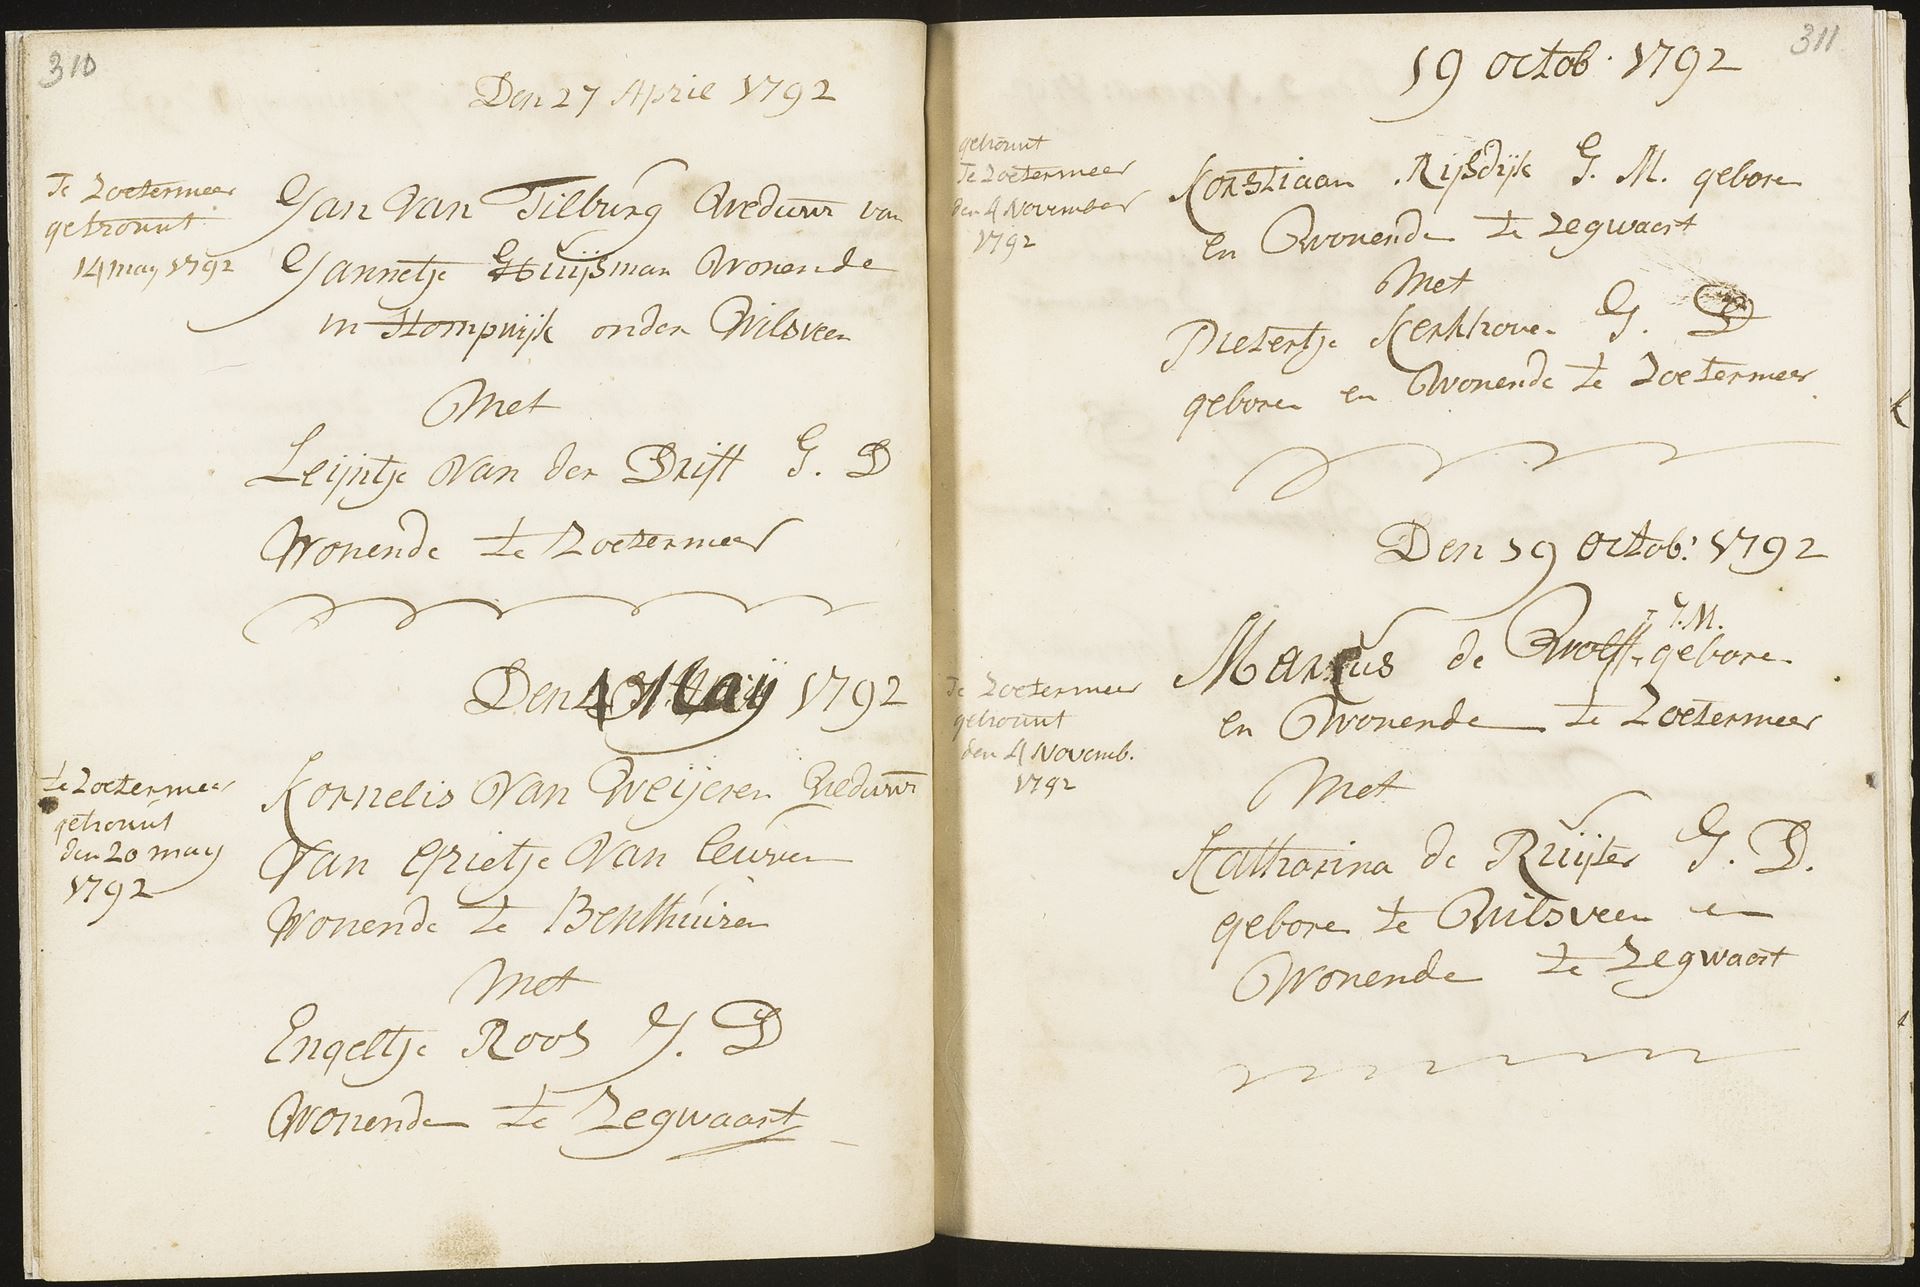 310
Den 27 April 1792
Te Zoetermeer
getrouwt
14 may 1792
Jan Van Tilburg Weduwr van
Jannetje Huijsman Wonende
in Stompwijk onder Wilsveen
Met
Leijntje Van der Drift J. D
Wonende te Zoetermeer
Den 4 May 1792
te Zoetermeer
getrouwt
den 20 may
1792
Kornelis Van Weijeren Weduwr
Van Grietje Van leuwen
Wonende te Benthuizen
Met
Engeltje Roos J. D
Wonende te Zegwaart
311
19 octob. 1792
getrouwt
Te Zoetermeer
den 4 November
1792
Korstiaan Rijsdijk J. M. geboren
en Wonende te Zegwaart
Met
Pietertje Kerkhoven J. D
geboren en Wonende te Zoetermeer
Den 19 octob: 1792
Te Zoetermeer
getrouwt
den 4 Novemb.
1792
J. M.
Markus de Wolff geboren
en Wonende te Zoetermeer
Met
Katharina de Ruijter J. D.
geboren te Wilsveen en
Wonende te Zegwaart